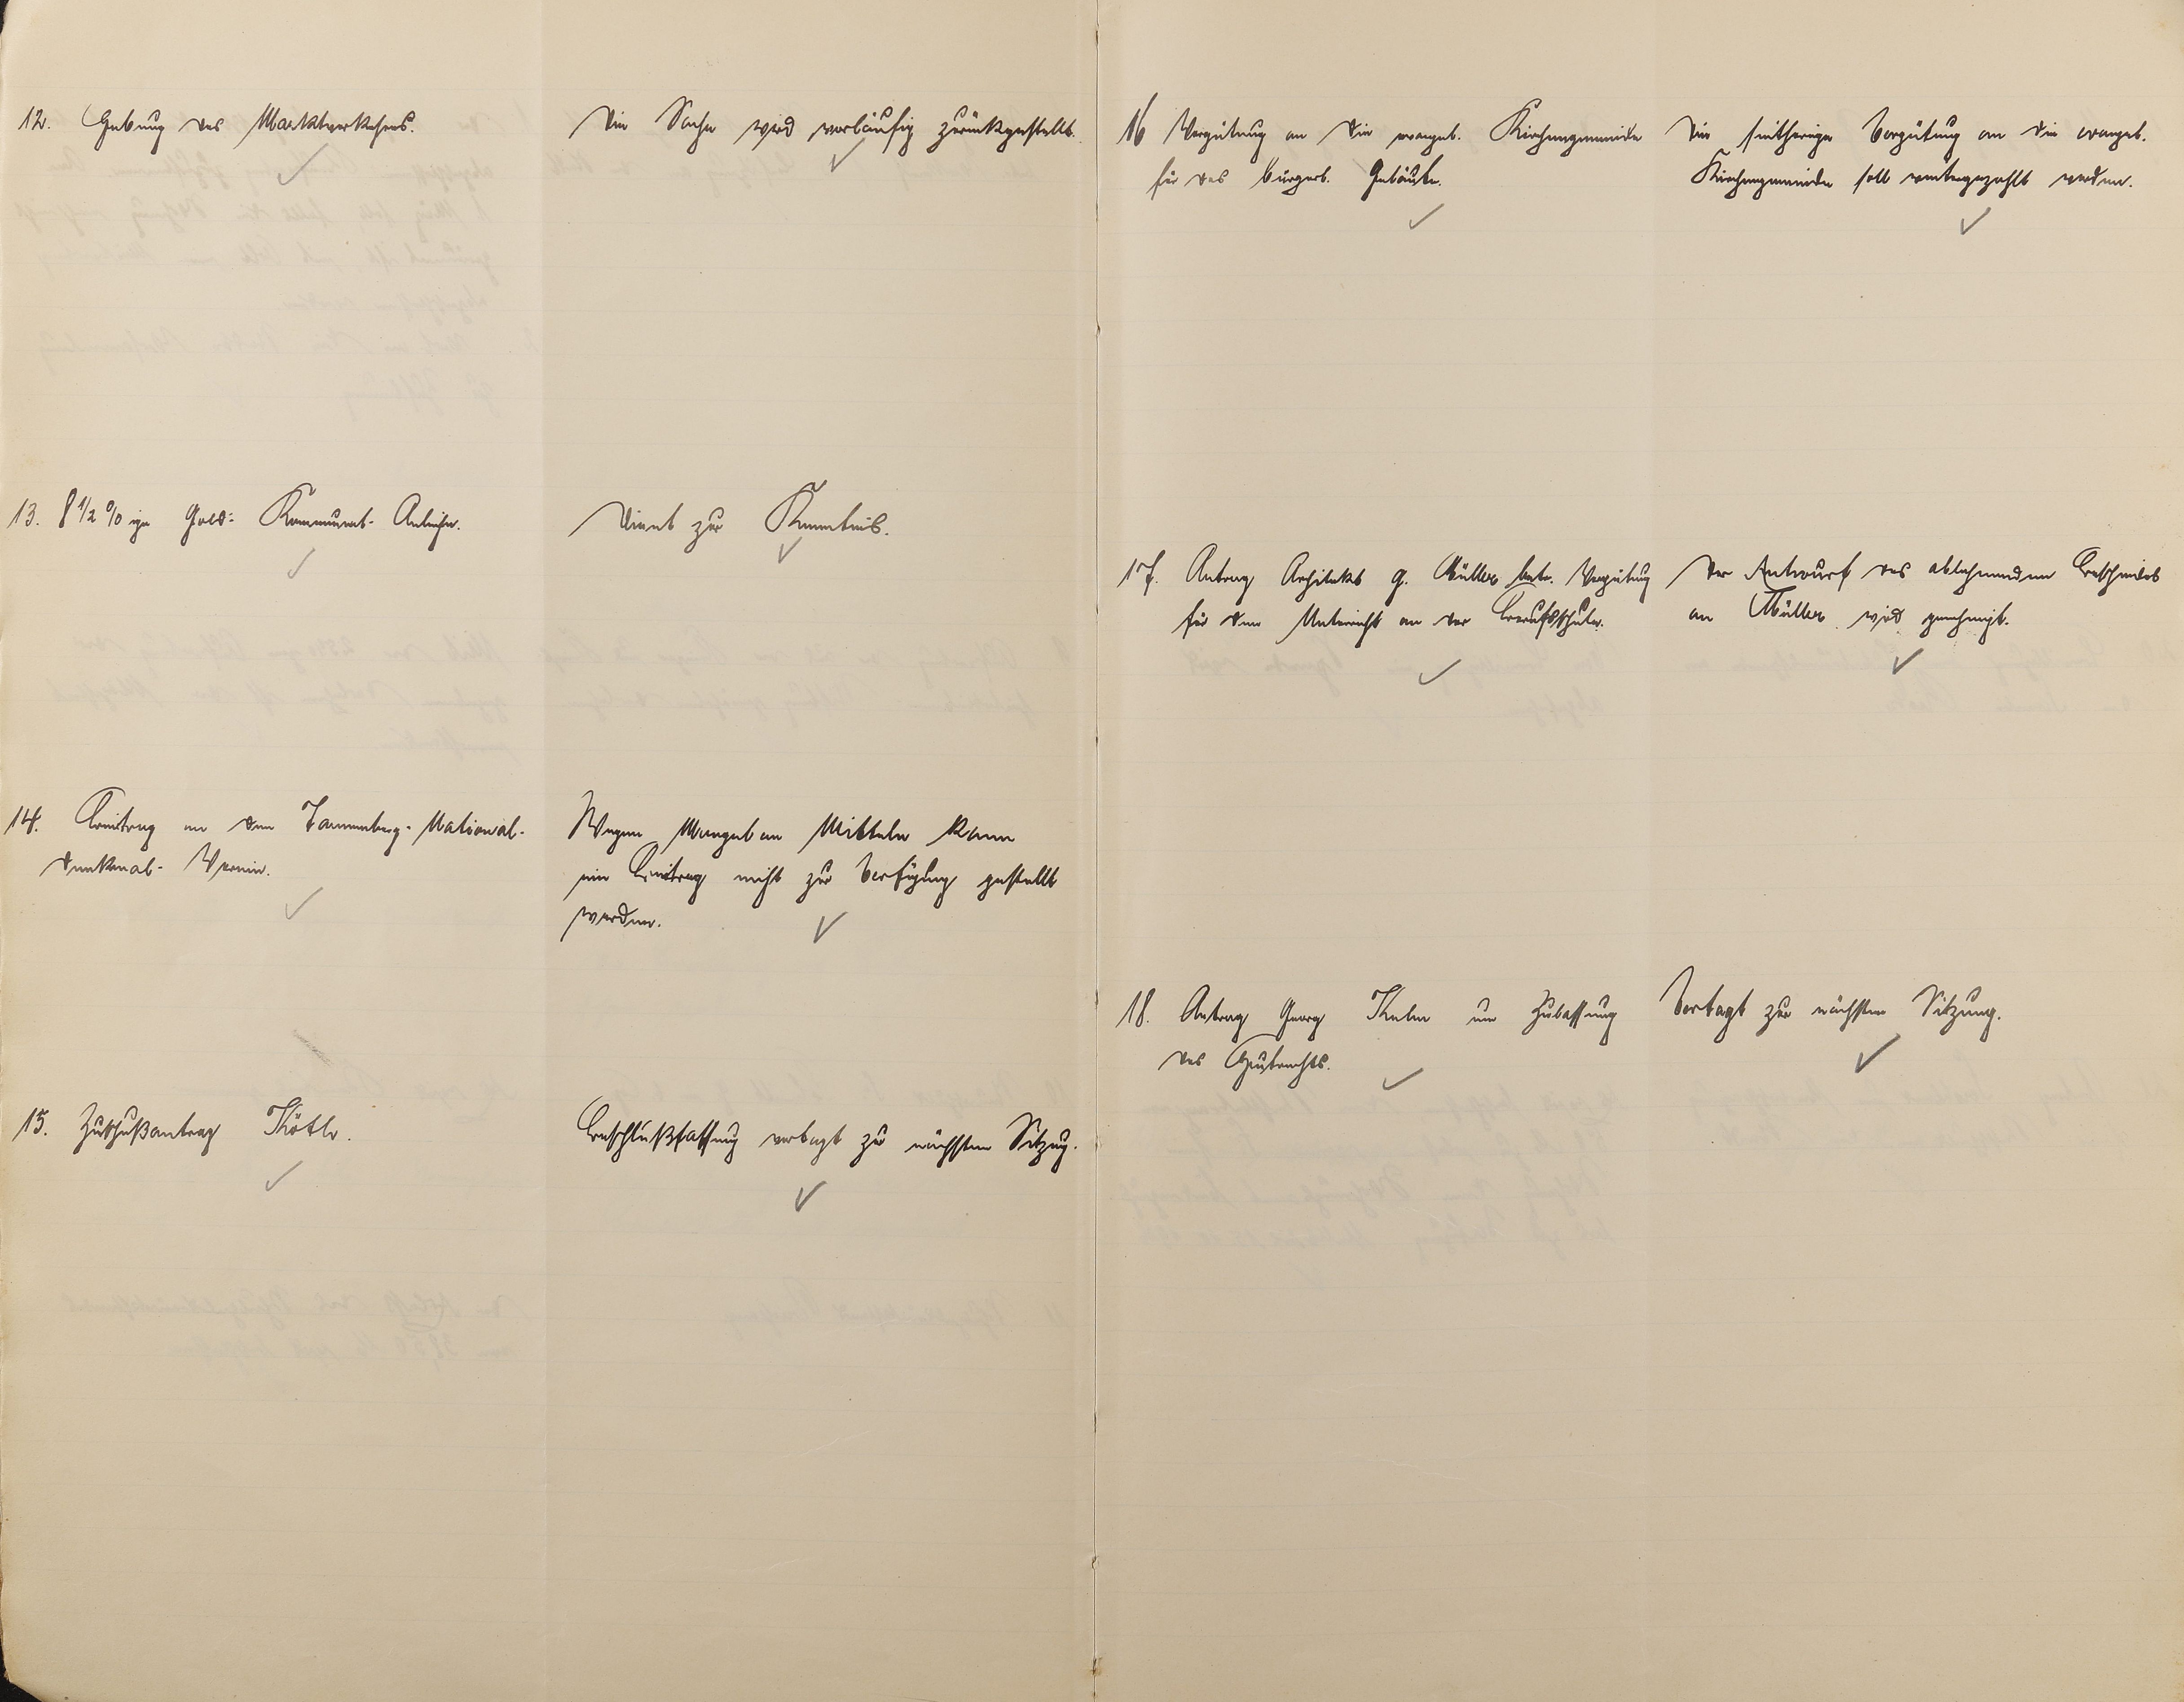 12. Hebung des Marktverkehrs.
Die Sache wird vorläufig zurückgestellt.
13. 8 1/2 % ige Gold- Kommunal- Anleihe.
Dient zur Kenntnis.
14. Beitrag an den Tannenberg- National-
denkmal- Verein.
Wegen Mangel an Mitteln kann
ein Beitrag nicht zur Verfügung gestellt
werden.
15. Zuschußantrag
Beschlußfassung vertagt zur nächsten Sitzung.
16 Vergütung an die evangel. Kirchengemeinde
für das bürgerl. Geläute.
Die seitherige Vergütung an die evangel.
Kirchengemeinde soll weitergezahlt werden.
17. Antrag Architekt G. Müller betr. Vergütung
für den Unterricht an der Berufsschule.
Der Entwurf des ablehnenden Bescheides
an Müller wird genehmigt.
18. Antrag Georg um Zulassung
des
Vertagt zur nächsten Sitzung.